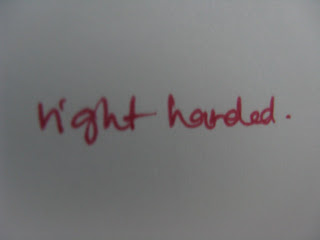 right handed.